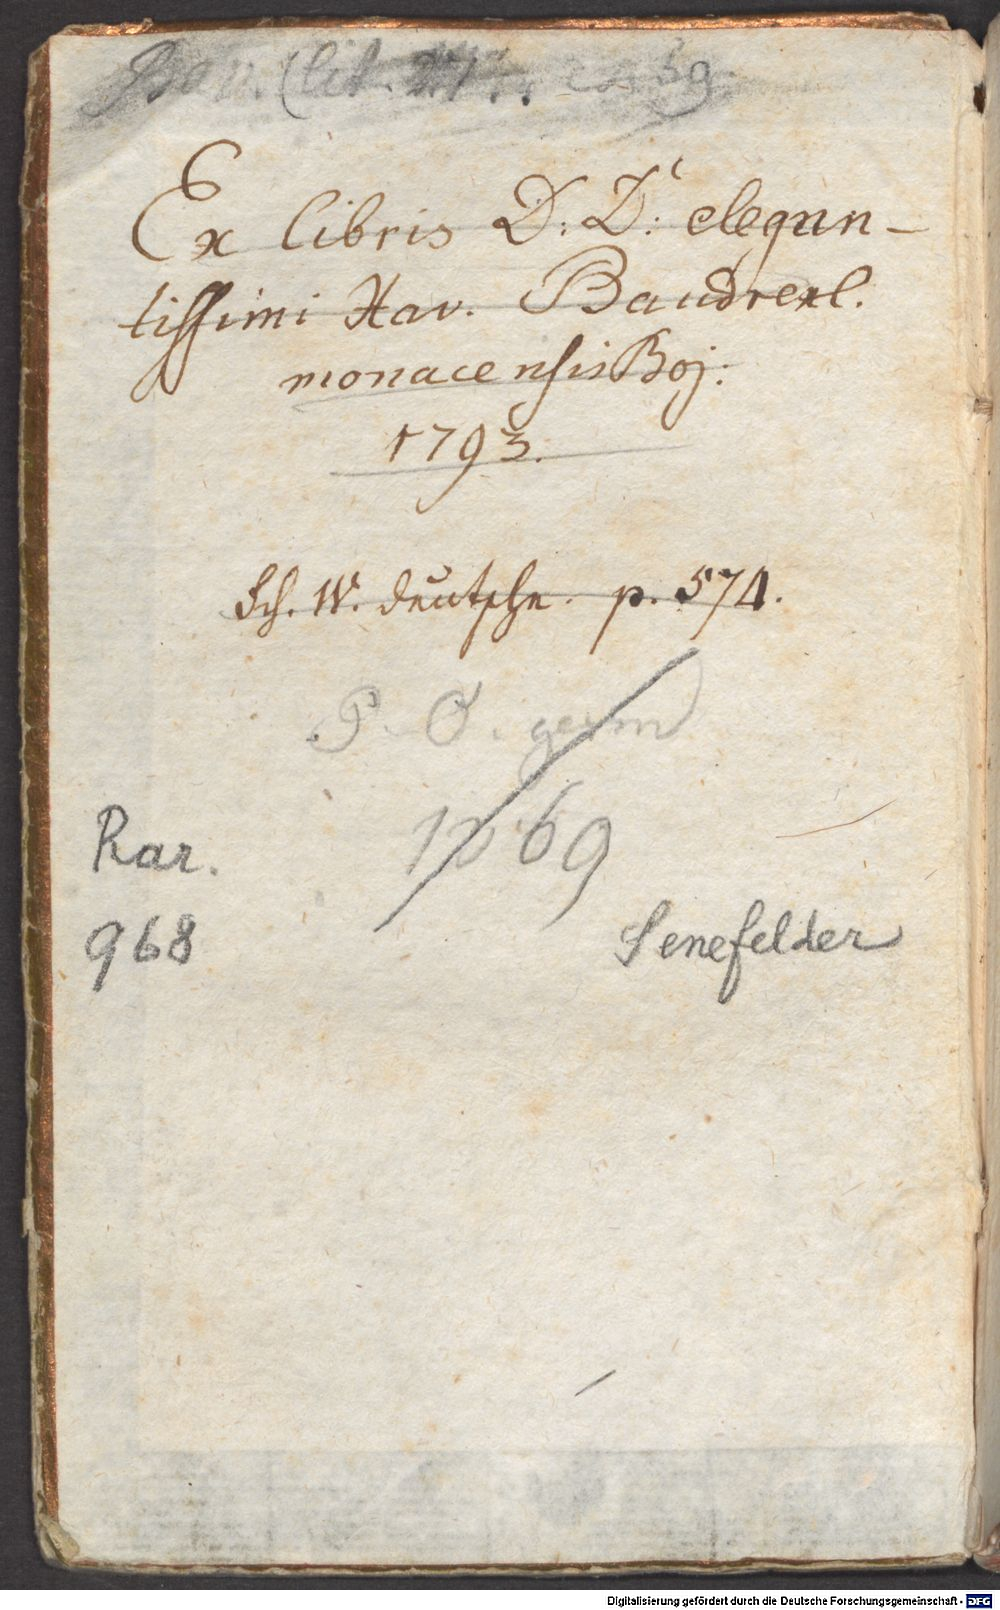 Bav.
Ex libris D: D: elegan-
tissimi Xav. Baudrexl.
monacensis Boj:
1793.
Sch. W. deutsche. p. 574.
P. O. germ
1069
Rar.
968
Senefelder
Digitalisierung gefördert durch die Deutsche Forschungsgemeinschaft - DFG